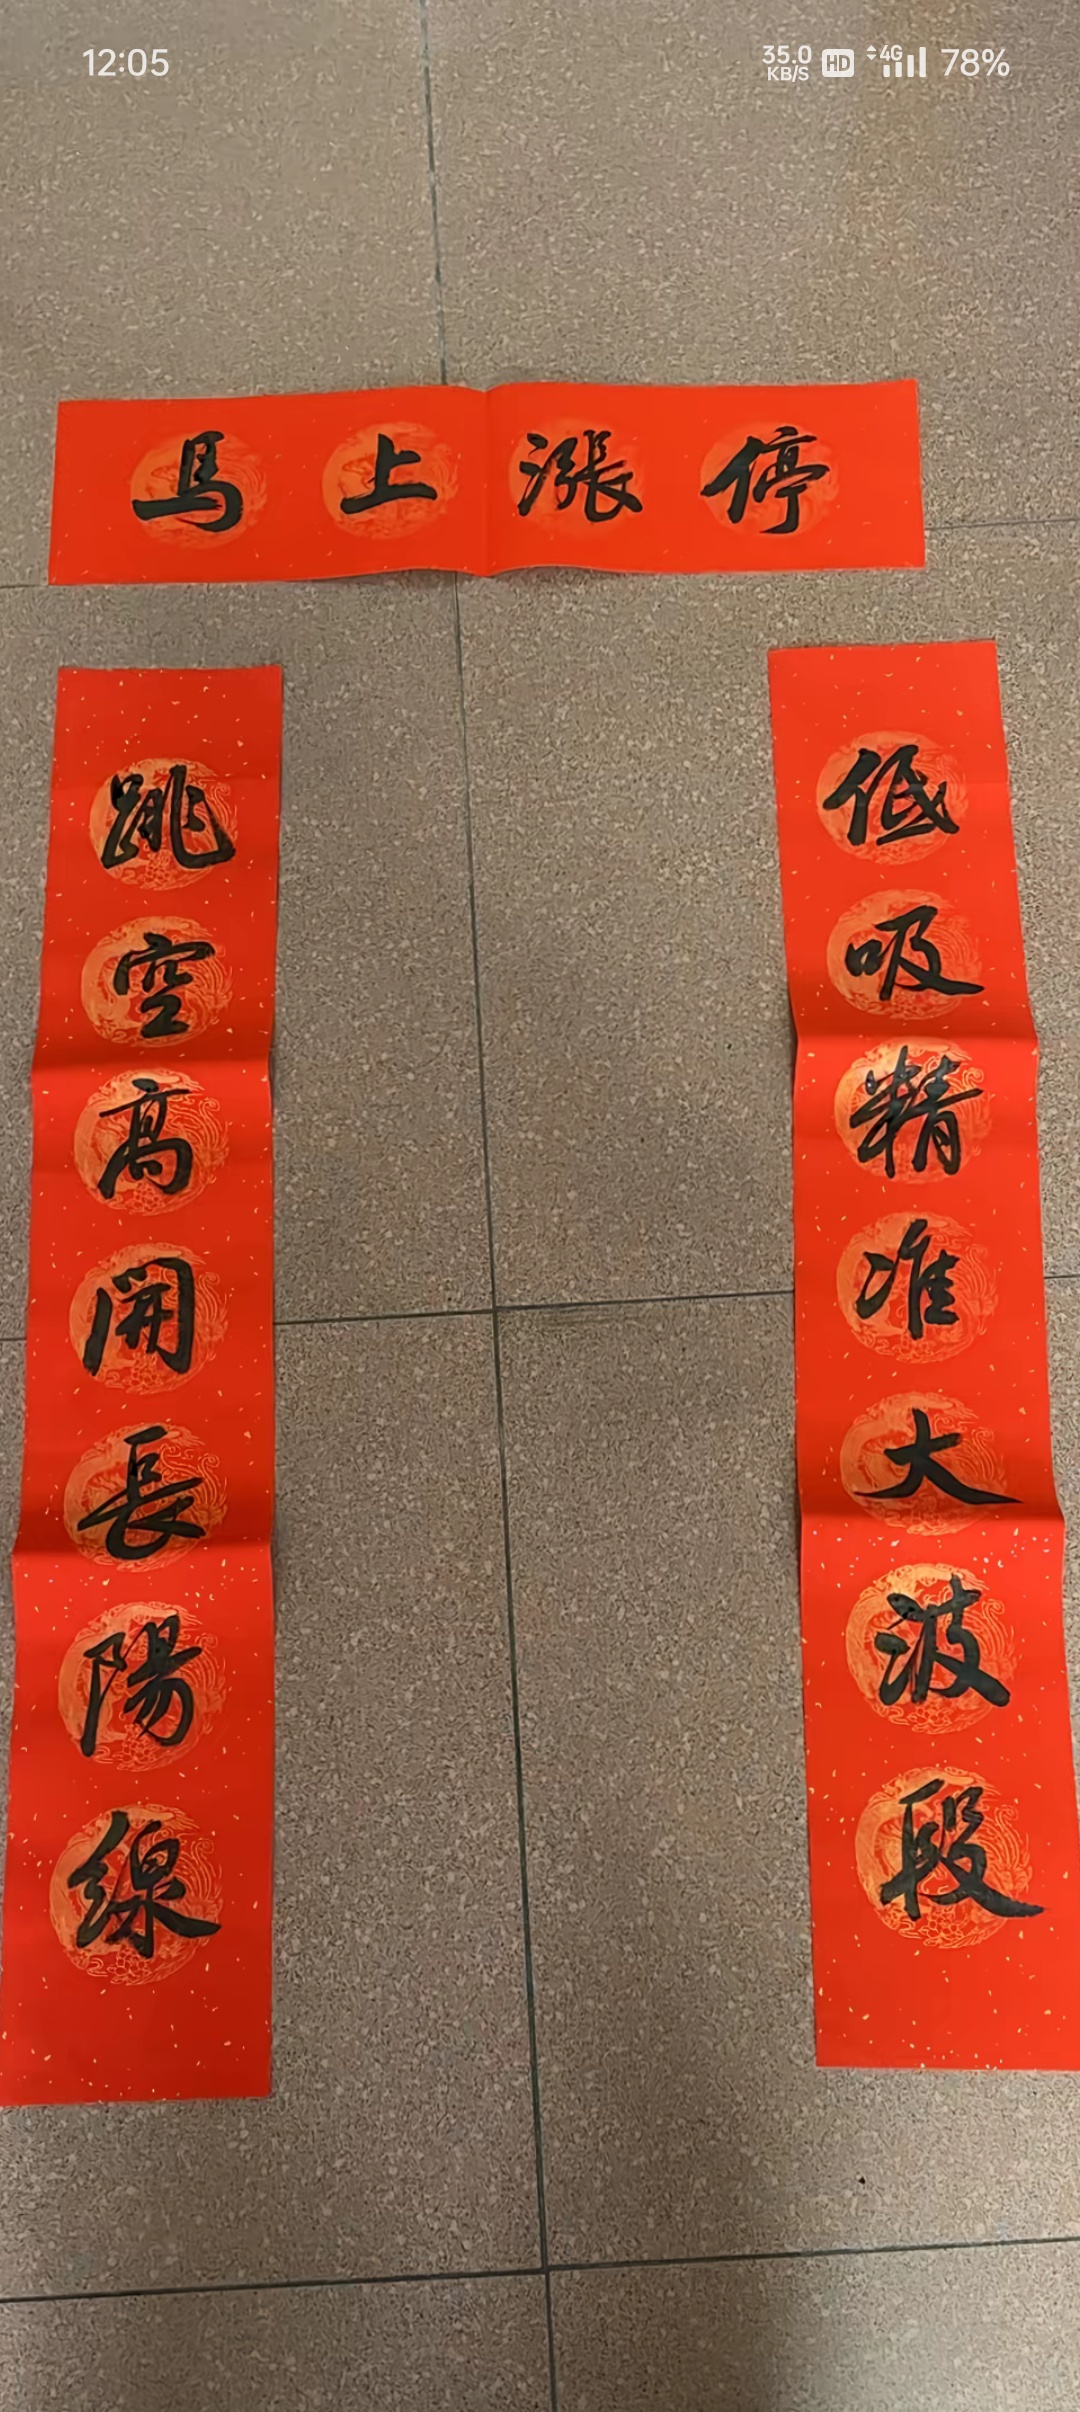 12:05
35.0 KB/S HD 4G 78%
馬上漲停
低吸精准大波段
跳空高開長陽線